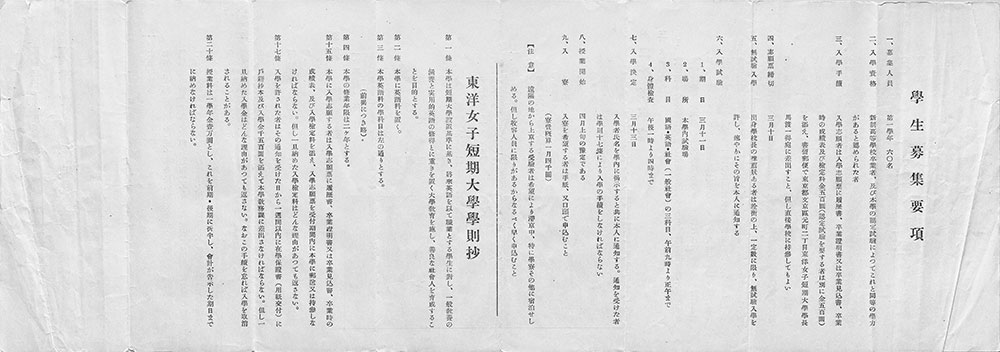 學生募集要項
一、募集人員　第一學年　六〇名
二、入學資格　新制高等學校卒業者、及び本學の認定試験によつてこれと同等の學力
があると認められた者
三、入學手續　入學志願者は入學志願票に履歷書、卒業證明書又は卒業見込書、卒業
時の成績表及び檢定料金五百圓(認定試験を要する者は別に金五百圓)
を添え、書留郵便で東京都文京區元町二丁目東洋女子短期大學學長
馬渡一得宛に差出すこと、但し直接學校に持參してもよい
四、志願票締切　三月十日
五、無試験入學　出身學校長の推薦狀ある者は詮衡の上、一定數に限り、無試験入學を
許し、速やかにその旨を本人に通知する
六、入學試験
1、期日　三月十一日
2、場所　本學內試験場
3、科目　國語・英語・社會(一般社會)の三科目、午前九時より正午まで
4、身體檢查　午後一時より四時まで
七、入學決定　三月十三日
入學者氏名を學內に揭示すると共に本人に通知する。通知を受けた者
は學則十七條により入學の手續をしなければならない
八、授業開始　四月上旬の豫定である
九、入寮　入寮を希望する者は手紙、又口頭で申込むこと
(寮費概算一月四千圓)
【注意】遠隔の地から上京する受驗者は希望により滯京中、特に學寮その他に宿泊せし
める。但し收容人員に限りがあるからなるべく早く申込むこと
東洋女子短期大學學則抄
第一條　本學は短期大學設置基準に基き、將來英語を以て職業とする學生に對し、一般教養の
備養と實用的英語の修得とに重きを置く大學教育を施し、善良な社會人を育成するこ
とを目的とする。
第二條　本學に英語科を置く。
第三條　本學英語科の學科目は左の通りとする。
(前揭につき略)
第四條　本學の修業年限は二ヶ年とする。
第十五條　本學に入學志願する者は入學志願票に履歷書、卒業證明書又は卒業見込書、卒業時の
成績表、及び入學檢定料を添え、入學志願票を受付期間內に本學に郵送又は持參しな
ければならない。但し一旦納めた入學檢定料はどんな理由があつても返さない。
第十七條　入學を許された者はその通知を受けた日から一週間以內に在學保證書(用紙交付)に
戶籍抄本及び入學金千五百圓を添えて本學敎務課に差出さなければならない。但し一
旦納めた入學金はどんな理由があつても返さない。なおこの手續を忘れば入學を取消
されることがある。
第二十條　授業料は一學年金壹万圓とし、これを前期・後期に折半し、會計が告示した期日まで
に納めなければならない。